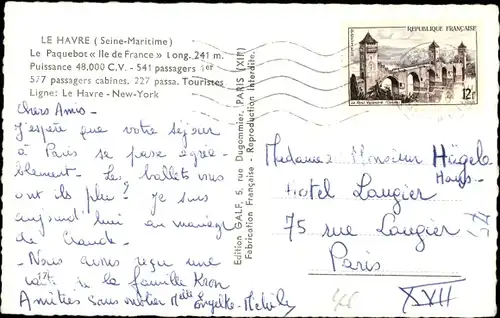 LE HAVRE (Seine-Maritime)
Le Paquebot « Ile de France » Long. 241 m.
Puissance 48.000 C.V. - 541 passagers 1er
577 passagers cabines. 227 passa. Touristes
Ligne: Le Havre - New-York
chers Amis -
J'espère que votre séjour
à Paris se passe agré-
ablement - Les ballets vous
ont ils plu? Je suis
aujourd'hui au mariage
de Claude -
- Nous avons reçu une
carte de la famille Kron
Amitiés sans oublier Melle Engelke -
Edition GALF, 5, rue Dugommier, PARIS (XIIe)
Fabrication Française - Reproduction Interdite.
REPUBLIQUE FRANÇAISE
12F
Madame Monsieur Hägele
Hans -
Hotel Laugier
75 rue Laugier
Paris
XVII